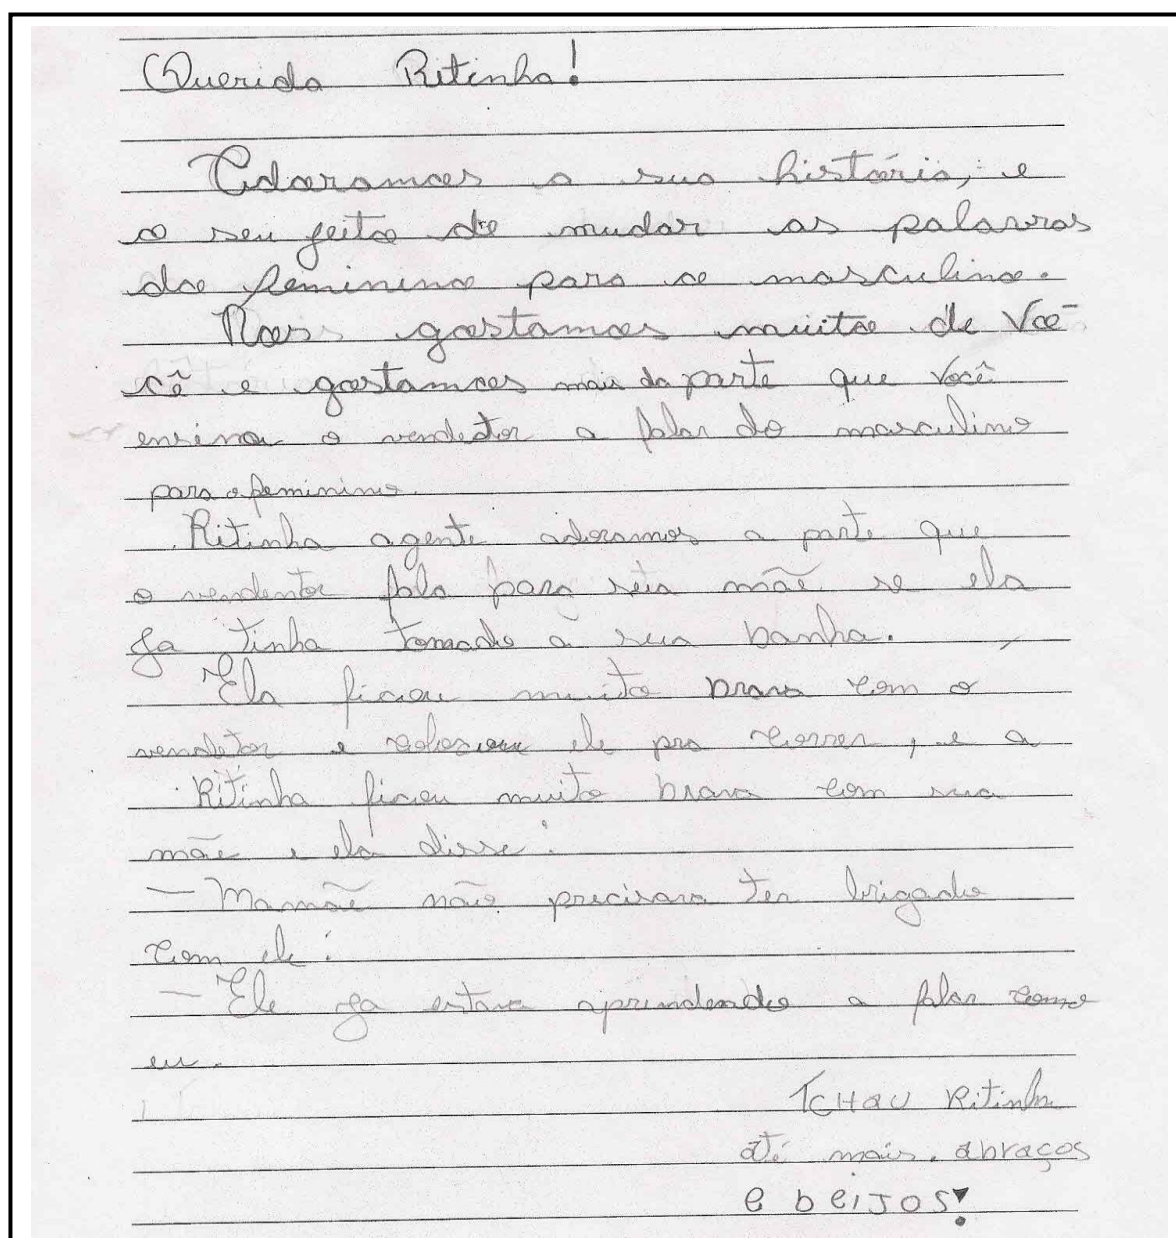 Querida Ritinha!
Adoramos a sua história, e
o seu jeito de mudar as palavras
do feminino para o masculino.
Nos gostamos muito de Vo-
cê e gostamos mais da parte que você
ensina o vendetor a falar do masculino
para o feminino.
Ritinha agente adoramos a parte que
o vendentor fala para sua mãe se ela
ga tinha tomado a sua banha.
Ela ficou muito brava com o
vendetor e colocou ele pra correr, e a
Ritinha ficou muito brava com sua
mãe e ela disse:
— Mamãe não precisava ter brigado
com ele:
— Ele ga estava aprendendo a falar como
eu.
TCHAU Ritinha
até mais. abraços
e beijos!